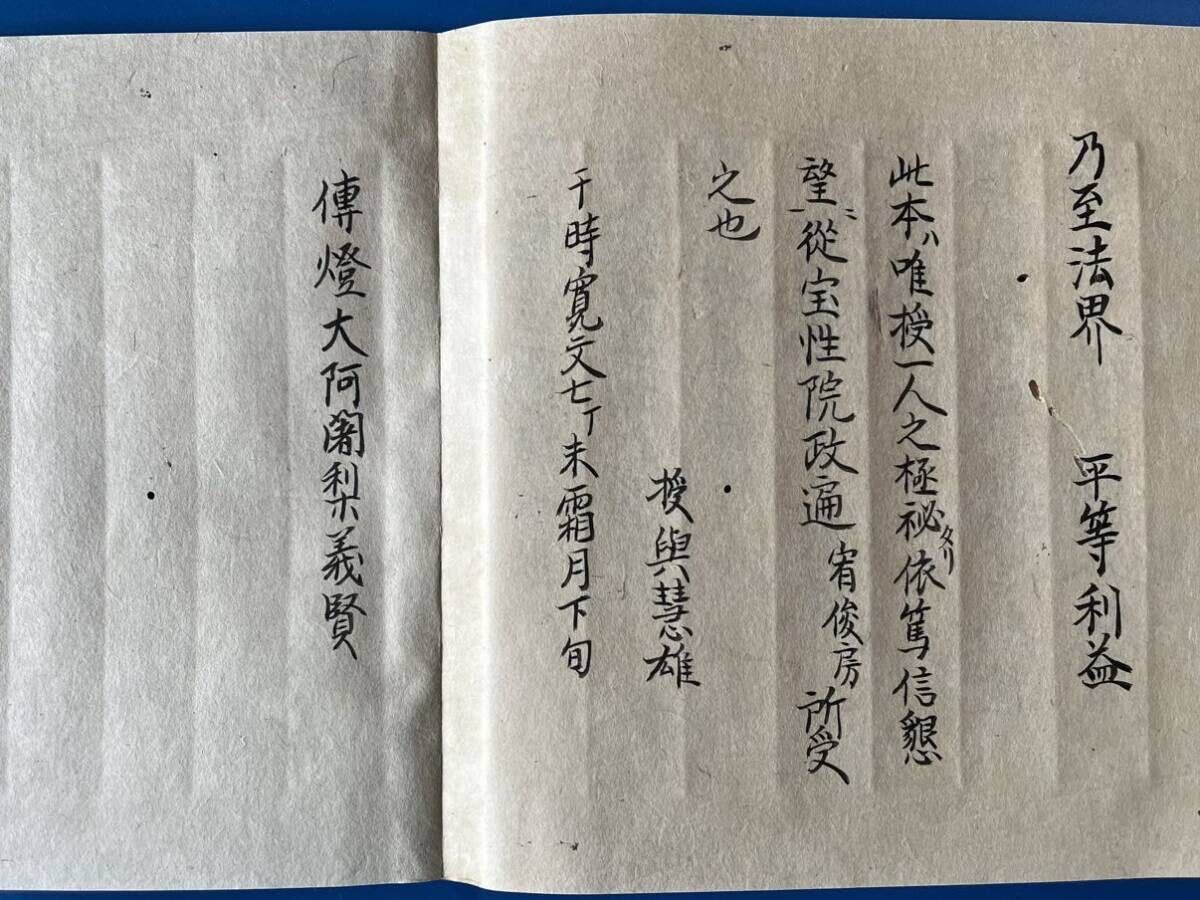 乃至法界　平等利益
此本ハ唯授一人之極祕タリ依篤信懇
望ニ一從宝性院政遍宥俊房所受
之也
授與慧雄
干時寛文七丁未霜月下旬
傳燈大阿闍梨義賢